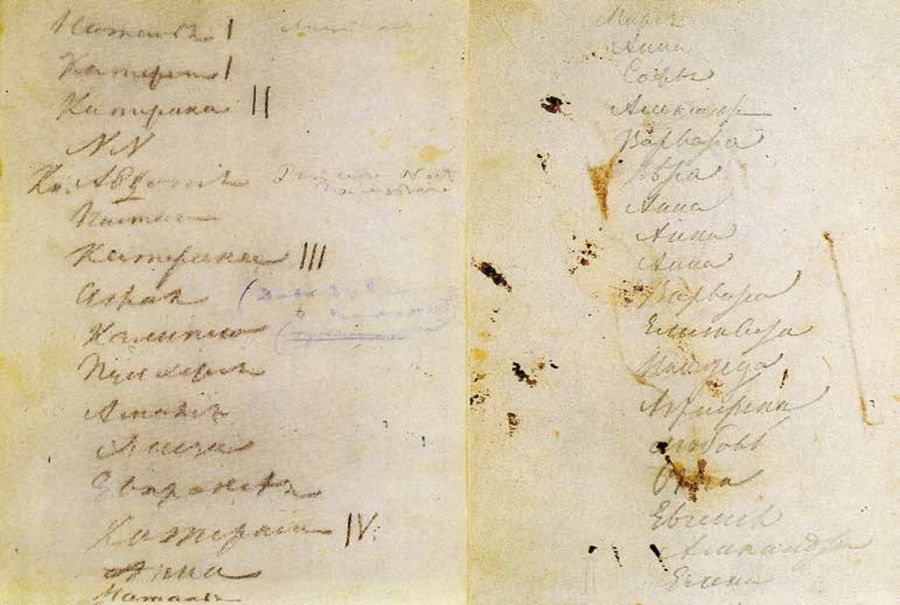 Наталья I
Катерина I
Катерина II
NN
Кн. Авдотия
Настасья
Катерина III
Аглая
Калипсо
Пульхерия
Амалия
Элиза
Евпраксея
Катерина IV
Анна
Наталья
Мария
Анна
Софья
Александра
Варвара
Вера
Анна
Анна
Анна
Варвара
Елизавета
Надежда
Аграфена
Любовь
Ольга
Евгения
Александра
Елена